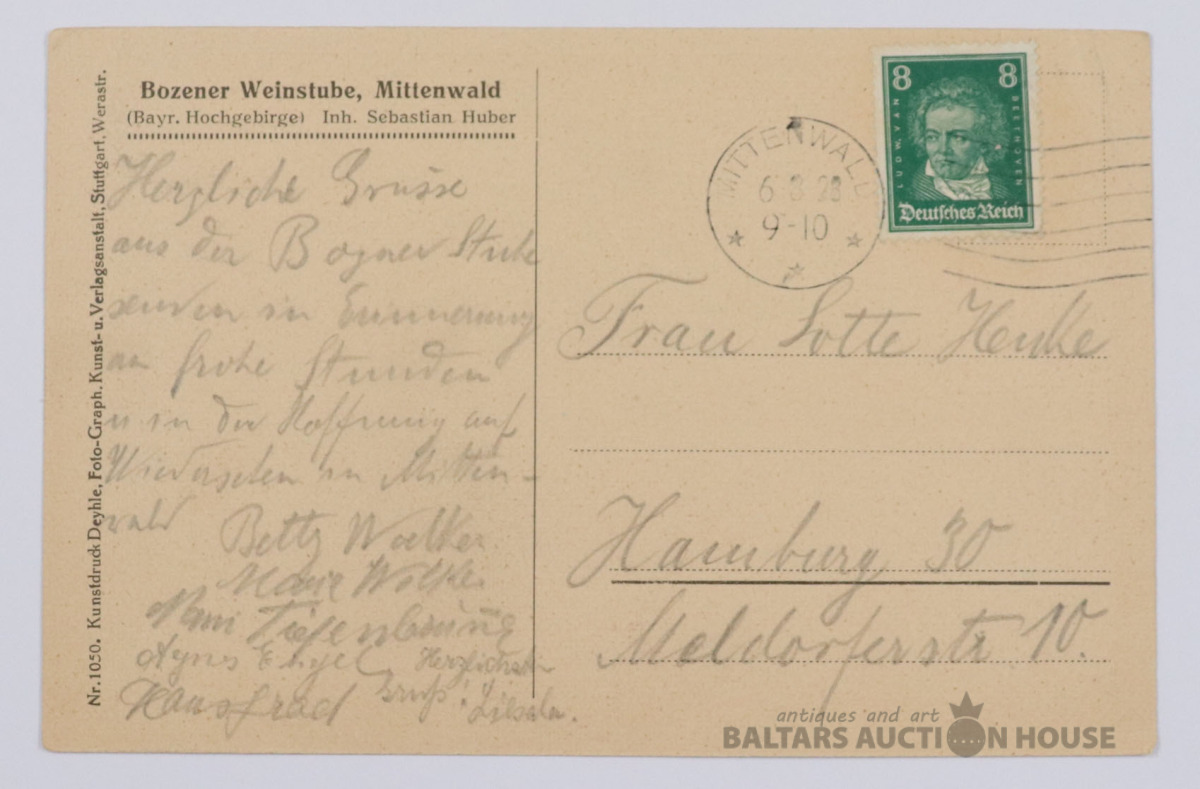 Bozener Weinstube, Mittenwald
(Bayr. Hochgebirge) Inh. Sebastian Huber
Nr. 1050. Kunstdruck Deyhle, Foto-Graph. Kunst- u. Verlagsanstalt, Stuttgart, Werastr.
Herzliche Grüsse
aus der Bozner Stube
senden in Erinnerung
an frohe Stunden
u in der Hoffnung auf
Wiedersehen in Mitten-
wald
Betty Woelker
Marie
Tiefenbrunn
Agnes Engel Herzlichsten
Gruß!
MITTENWALD
6 8 28
9-10
8 8
LUDW. VAN BEETHOVEN
Deutsches Reich
Frau Lotte Henke
Hamburg 30
Meldorferstr 10.
antiques and art
BALTARS AUCTION HOUSE